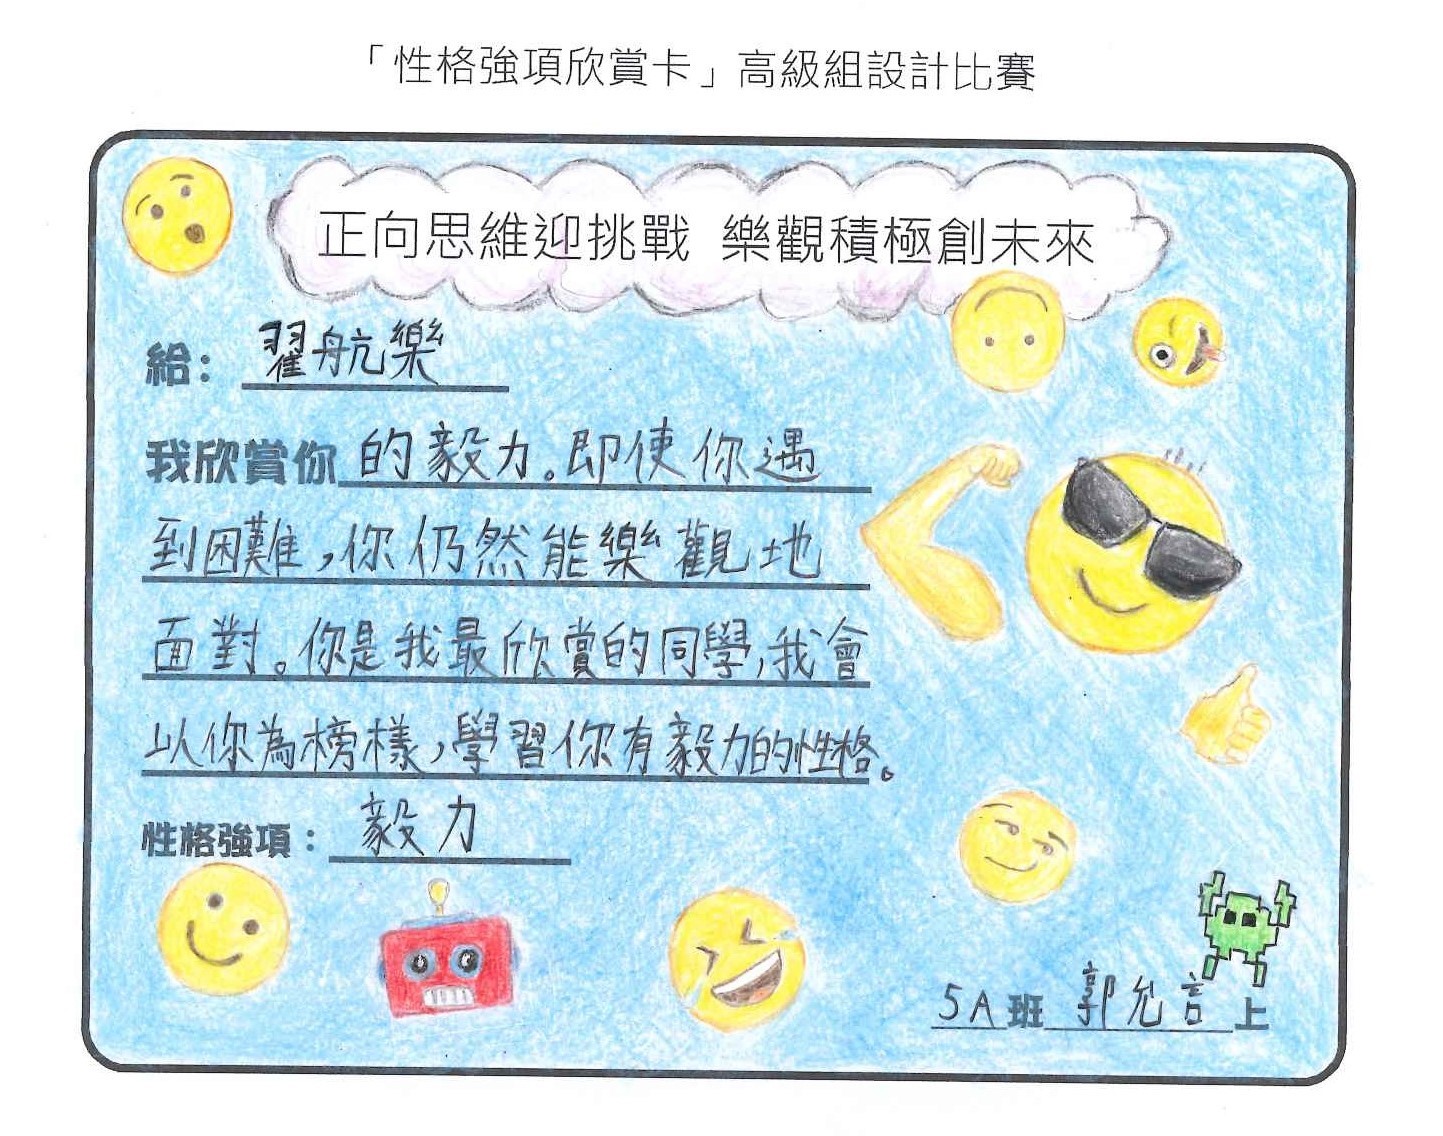 「性格強項欣賞卡」高級組設計比賽
正向思維迎挑戰 樂觀積極創未來
給：翟航樂
我欣賞你的毅力。即使你遇
到困難，你仍然能樂觀地
面對。你是我最欣賞的同學，我會
以你為榜樣，學習你有毅力的性格。
性格強項：毅力
5A班郭允言上